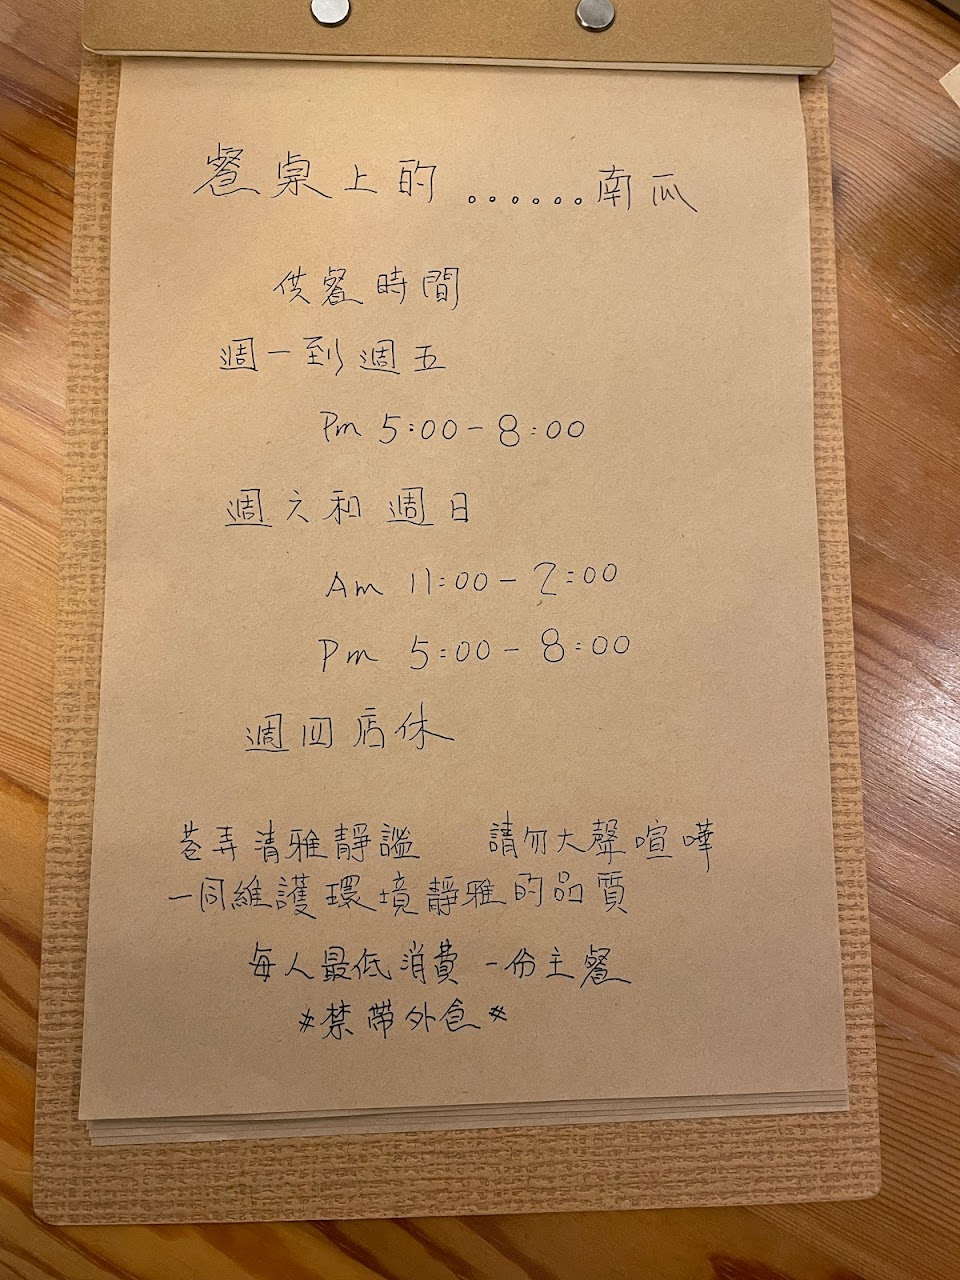 餐桌上的......南瓜
供餐時間
週一到週五
Pm 5:00-8:00
週六和週日
Am 11:00-2:00
Pm 5:00-8:00
週四店休
巷弄清雅靜謐 請勿大聲喧嘩
一同維護環境靜雅的品質
每人最低消費一份主餐
*禁帶外食*